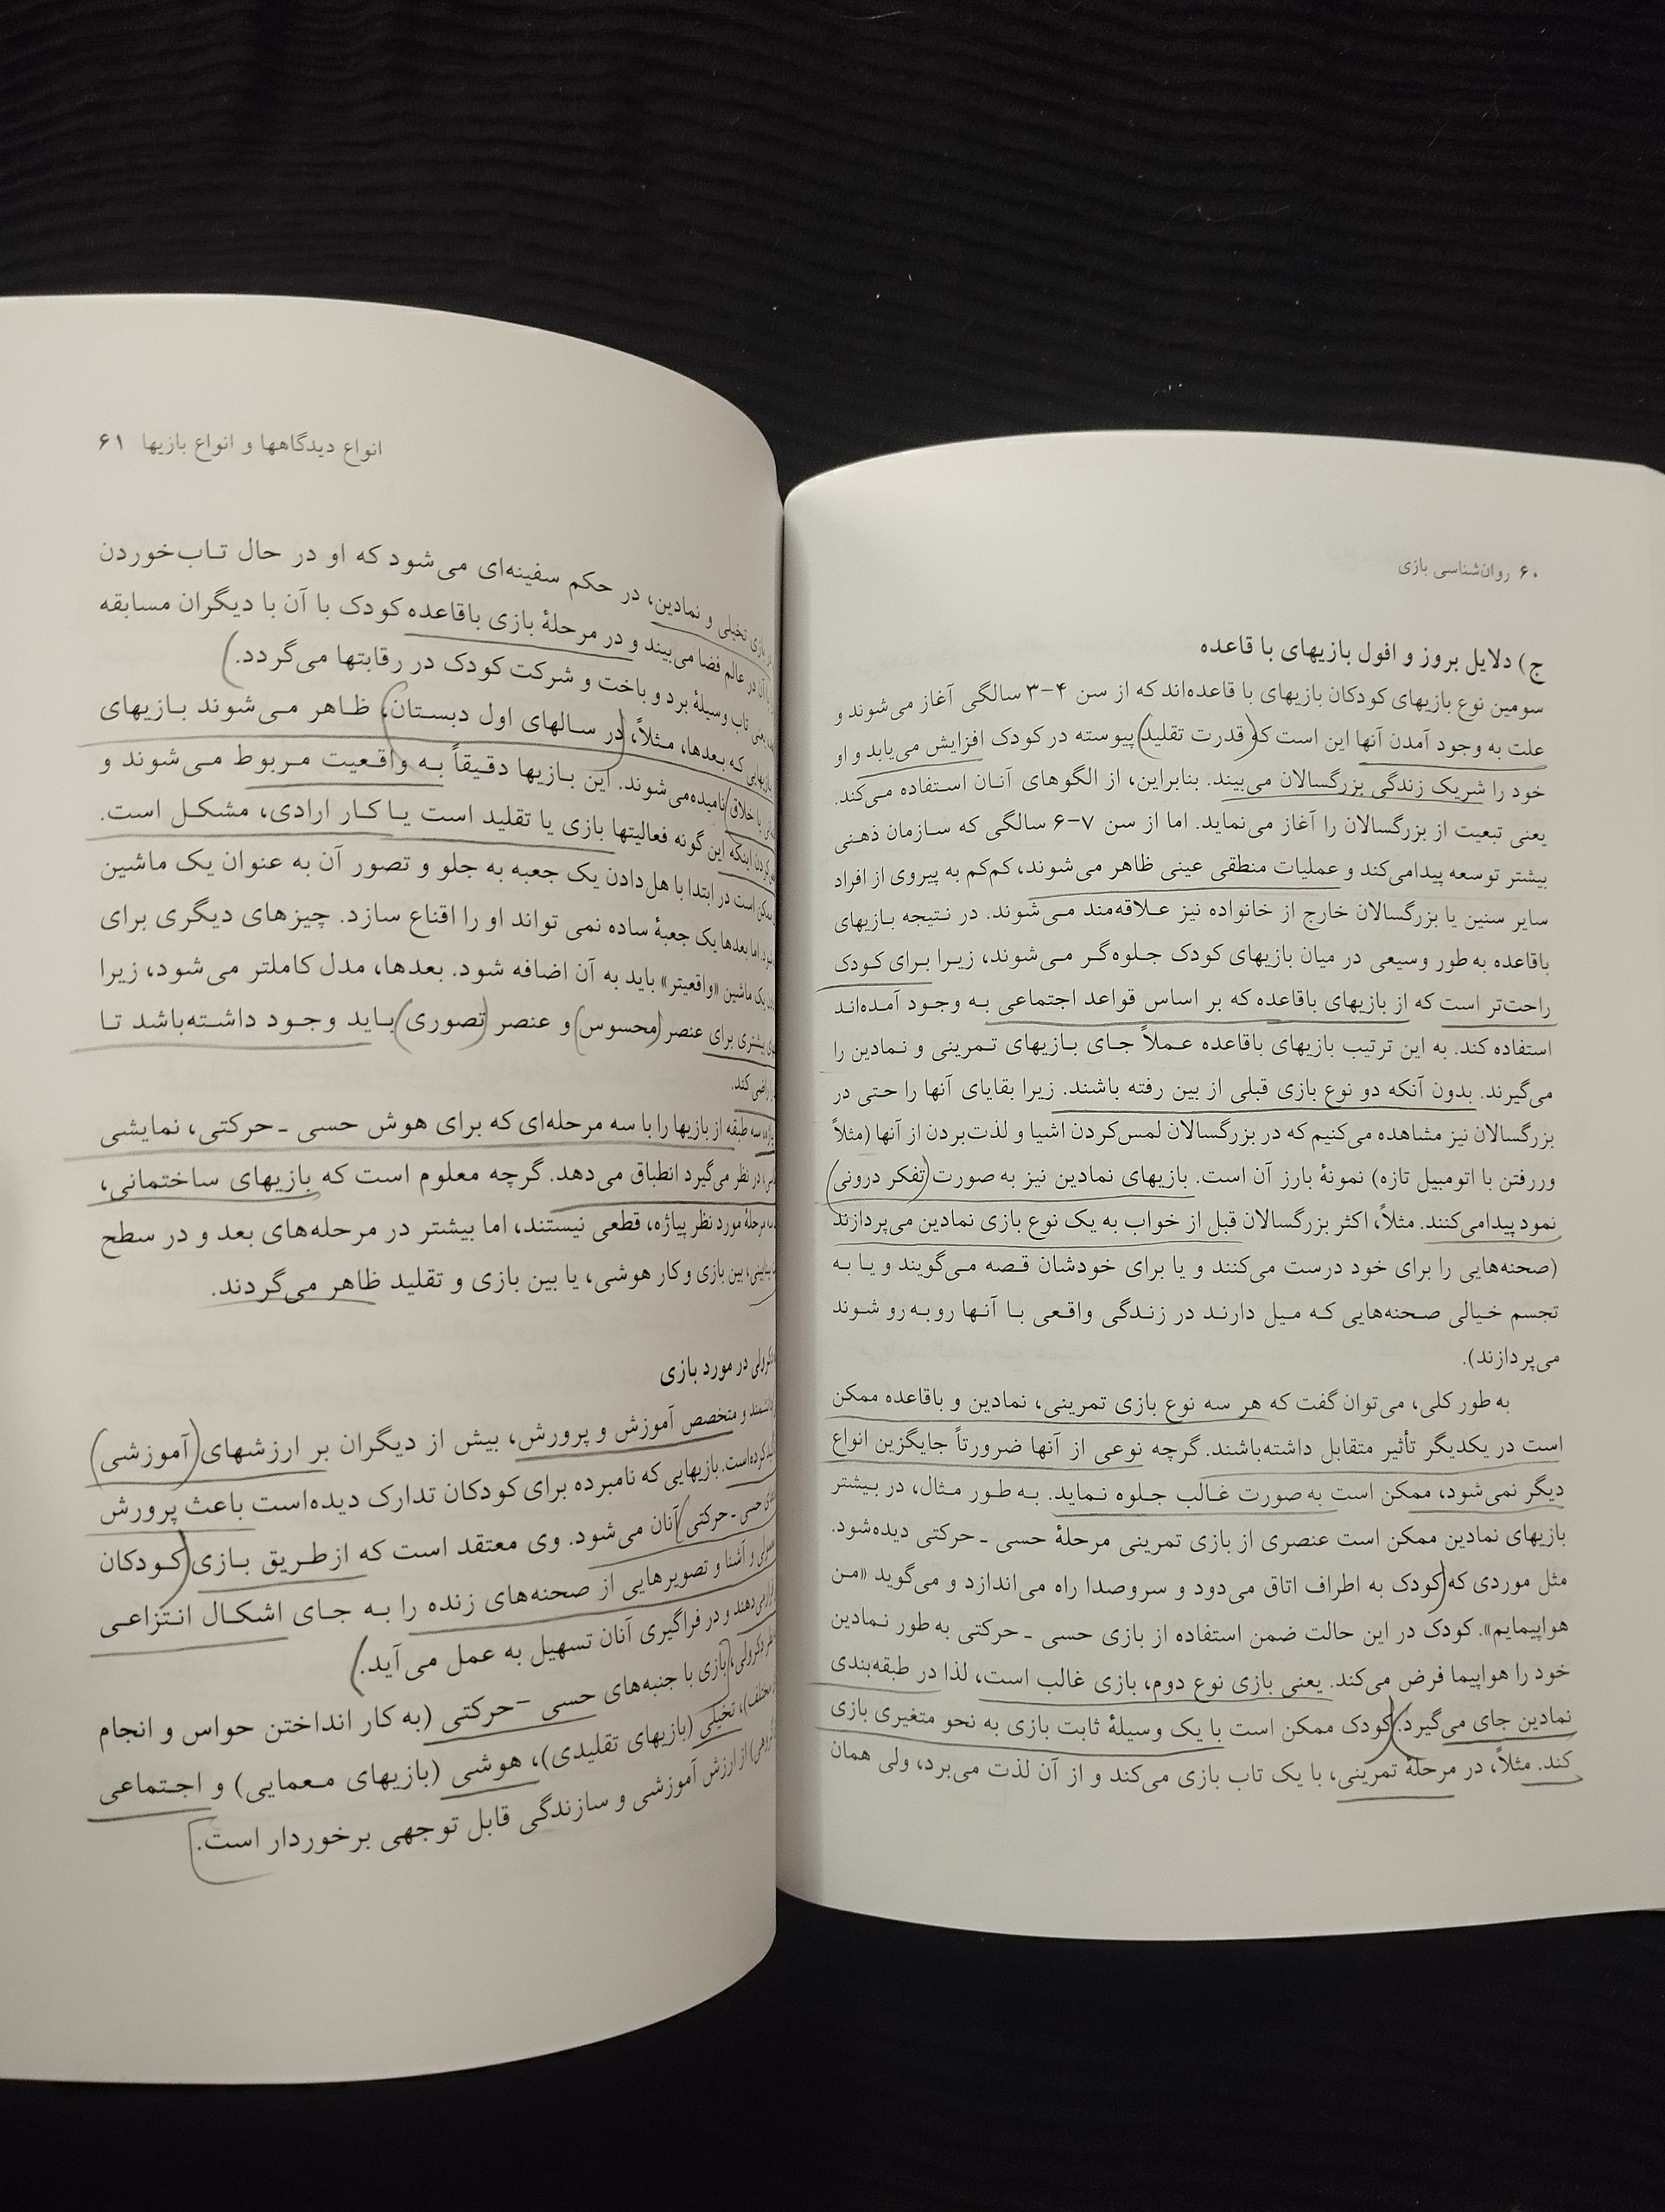 ۶۰ روان‌شناسی بازی
ج) دلایل بروز و افول بازیهای با قاعده
سومین نوع بازیهای کودکان بازیهای با قاعده‌اند که از سن ۴-۳ سالگی آغاز می‌شوند و
علت به وجود آمدن آنها این است که (قدرت تقلید) پیوسته در کودک افزایش می‌یابد و او
خود را شریک زندگی بزرگسالان می‌بیند. بنابراین، از الگوهای آنان استفاده می‌کند.
یعنی تبعیت از بزرگسالان را آغاز می‌نماید. اما از سن ۷-۶ سالگی که سازمان ذهنی
بیشتر توسعه پیدامی‌کند و عملیات منطقی عینی ظاهر می‌شوند، کم‌کم به پیروی از افراد
سایر سنین یا بزرگسالان خارج از خانواده نیز علاقه‌مند می‌شوند. در نتیجه بازیهای
باقاعده به طور وسیعی در میان بازیهای کودک جلوه‌گر می‌شوند، زیرا برای کودک
راحت‌تر است که از بازیهای باقاعده که بر اساس قواعد اجتماعی به وجود آمده‌اند
استفاده کند. به این ترتیب بازیهای باقاعده عملاً جای بازیهای تمرینی و نمادین را
می‌گیرند. بدون آنکه دو نوع بازی قبلی از بین رفته باشند. زیرا بقایای آنها را حتی در
بزرگسالان نیز مشاهده می‌کنیم که در بزرگسالان لمس‌کردن اشیا و لذت‌بردن از آنها (مثلاً
وررفتن با اتومبیل تازه) نمونهٔ بارز آن است. بازیهای نمادین نیز به صورت (تفکر درونی)
نمود پیدامی‌کنند. مثلاً، اکثر بزرگسالان قبل از خواب به یک نوع بازی نمادین می‌پردازند
(صحنه‌هایی را برای خود درست می‌کنند و یا برای خودشان قصه می‌گویند و یا به
تجسم خیالی صحنه‌هایی که میل دارند در زندگی واقعی با آنها روبه‌رو شوند
می‌پردازند).
به طور کلی، می‌توان گفت که هر سه نوع بازی تمرینی، نمادین و باقاعده ممکن
است در یکدیگر تأثیر متقابل داشته‌باشند. گرچه نوعی از آنها ضرورتاً جایگزین انواع
دیگر نمی‌شود، ممکن است به صورت غالب جلوه نماید. به طور مثال، در بیشتر
بازیهای نمادین ممکن است عنصری از بازی تمرینی مرحلهٔ حسی ـ حرکتی دیده‌شود.
مثل موردی که (کودک به اطراف اتاق می‌دود و سروصدا راه می‌اندازد و می‌گوید «من
هواپیمایم». کودک در این حالت ضمن استفاده از بازی حسی ـ حرکتی به طور نمادین
خود را هواپیما فرض می‌کند. یعنی بازی نوع دوم، بازی غالب است، لذا در طبقه‌بندی
نمادین جای می‌گیرد.) کودک ممکن است با یک وسیلهٔ ثابت بازی به نحو متغیری بازی
کند. مثلاً، در مرحلهٔ تمرینی، با یک تاب بازی می‌کند و از آن لذت می‌برد، ولی همان
انواع دیدگاهها و انواع بازیها ۶۱
بازی تخیلی و نمادین، در حکم سفینه‌ای می‌شود که او در حال تاب‌خوردن
در عالم فضا می‌بیند و در مرحلهٔ بازی باقاعده کودک با آن با دیگران مسابقه
یعنی تاب وسیلهٔ برد و باخت و شرکت کودک در رقابتها می‌گردد.)
بازیهایی که بعدها، مثلاً، (در سالهای اول دبستان)، ظاهر می‌شوند بازیهای
خلاق) نامیده‌می‌شوند. این بازیها دقیقاً به واقعیت مربوط می‌شوند و
اینکه این گونه فعالیتها بازی یا تقلید است یا کار ارادی، مشکل است.
ممکن است در ابتدا با هل‌دادن یک جعبه به جلو و تصور آن به عنوان یک ماشین
اما بعدها یک جعبهٔ ساده نمی تواند او را اقناع سازد. چیزهای دیگری برای
یک ماشین «واقعیتر» باید به آن اضافه شود. بعدها، مدل کاملتر می‌شود، زیرا
بیشتری برای عنصر (محسوس) و عنصر (تصوری) باید وجود داشته‌باشد تا
راضی کند.
سه طبقه از بازیها را با سه مرحله‌ای که برای هوش حسی ـ حرکتی، نمایشی
در نظر می‌گیرد انطباق می‌دهد. گرچه معلوم است که بازیهای ساختمانی،
مرحلهٔ مورد نظر پیاژه، قطعی نیستند، اما بیشتر در مرحله‌های بعد و در سطح
بین بازی و کار هوشی، یا بین بازی و تقلید ظاهر می‌گردند.
دکرولی در مورد بازی
و متخصص آموزش و پرورش، بیش از دیگران بر ارزشهای (آموزشی)
کرده‌است. بازیهایی که نامبرده برای کودکان تدارک دیده‌است باعث پرورش
حسی ـ حرکتی) آنان می‌شود. وی معتقد است که ازطریق بازی (کودکان
و آشنا و تصویرهایی از صحنه‌های زنده را به جای اشکال انتزاعی
می‌دهند و در فراگیری آنان تسهیل به عمل می‌آید.)
دکرولی، (بازی با جنبه‌های حسی -حرکتی (به کار انداختن حواس و انجام
مختلف)، تخیلی (بازیهای تقلیدی)، هوشی (بازیهای معمایی) و اجتماعی
از ارزش آموزشی و سازندگی قابل توجهی برخوردار است.